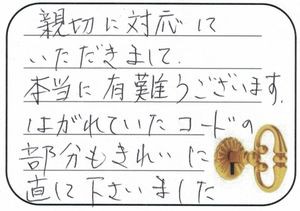 親切に対応して
いただきまして.
本当に有難うございます.
はがれていたコードの
部分もきれいに
直して下さいました